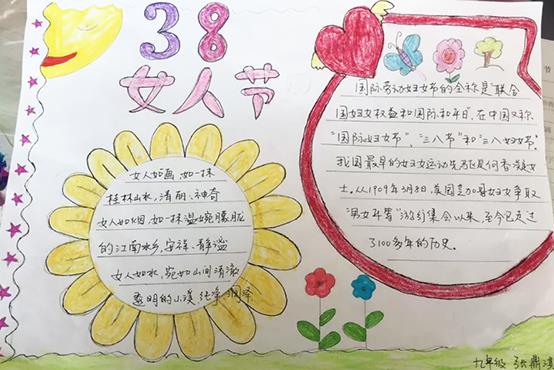 38
女人节
女人如画,如一抹
桂林山水,清丽、神奇
女人如烟,如一抹温婉朦胧
的江南水乡,安祥、静谧
女人如水,宛如山间清澈
明的小溪,纯净
国际劳动妇女节的全称是"联合
国妇女权益和国际和平日",在中国又称
"国际妇女节"、"三八节"和"三八妇女节".
我国最早的妇女运动先驱是何香凝女
士.从1909年3月8日,美国芝加哥妇女争取
"男女平等"游行集会以来,至今已走过
了100多年的历史.
九年级 张